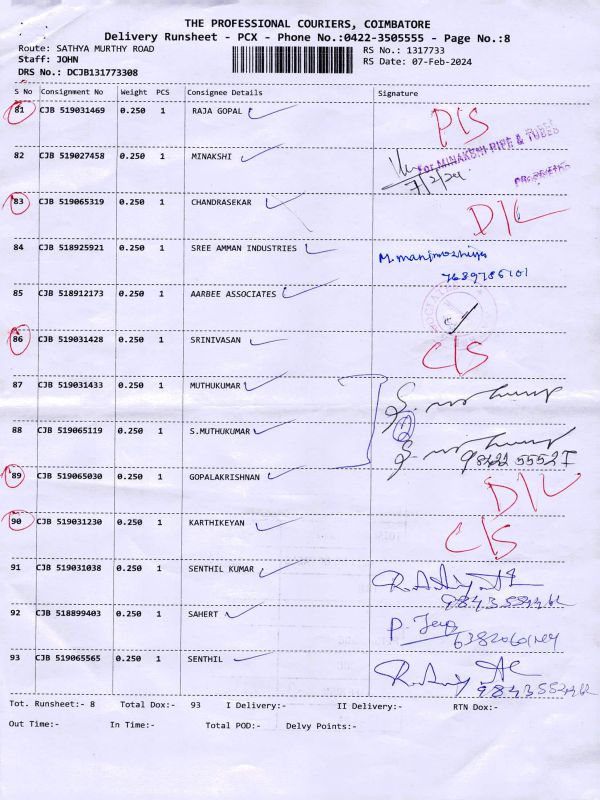 THE PROFESSIONAL COURIERS, COIMBATORE
Delivery Runsheet - PCX - Phone No.:0422-3505555 - Page No.:8
Route: SATHYA MURTHY ROAD RS No.: 1317733
Staff: JOHN RS Date: 07-Feb-2024
DRS No.: DCJB131773308
S No Consignment No Weight PCS Consignee Details Signature
81 CJB 519031469 0.250 1 RAJA GOPAL P/S
82 CJB 519027458 0.250 1 MINAKSHI for MINAKSHI PIPE & TUBES
7/2/24
83 CJB 519065319 0.250 1 CHANDRASEKAR D/L
84 CJB 518925921 0.250 1 SREE AMMAN INDUSTRIES
85 CJB 518912173 0.250 1 AARBEE ASSOCIATES
86 CJB 519031428 0.250 1 SRINIVASAN C/S
87 CJB 519031433 0.250 1 MUTHUKUMAR
88 CJB 519065119 0.250 1 S.MUTHUKUMAR
89 CJB 519065030 0.250 1 GOPALAKRISHNAN D/L
90 CJB 519031230 0.250 1 KARTHIKEYAN C/S
91 CJB 519031038 0.250 1 SENTHIL KUMAR
92 CJB 518899403 0.250 1 SAHERT
93 CJB 519065565 0.250 1 SENTHIL
Tot. Runsheet:- 8 Total Dox:- 93 I Delivery:- II Delivery:- RTN Dox:-
Out Time:- In Time:- Total POD:- Delvy Points:-